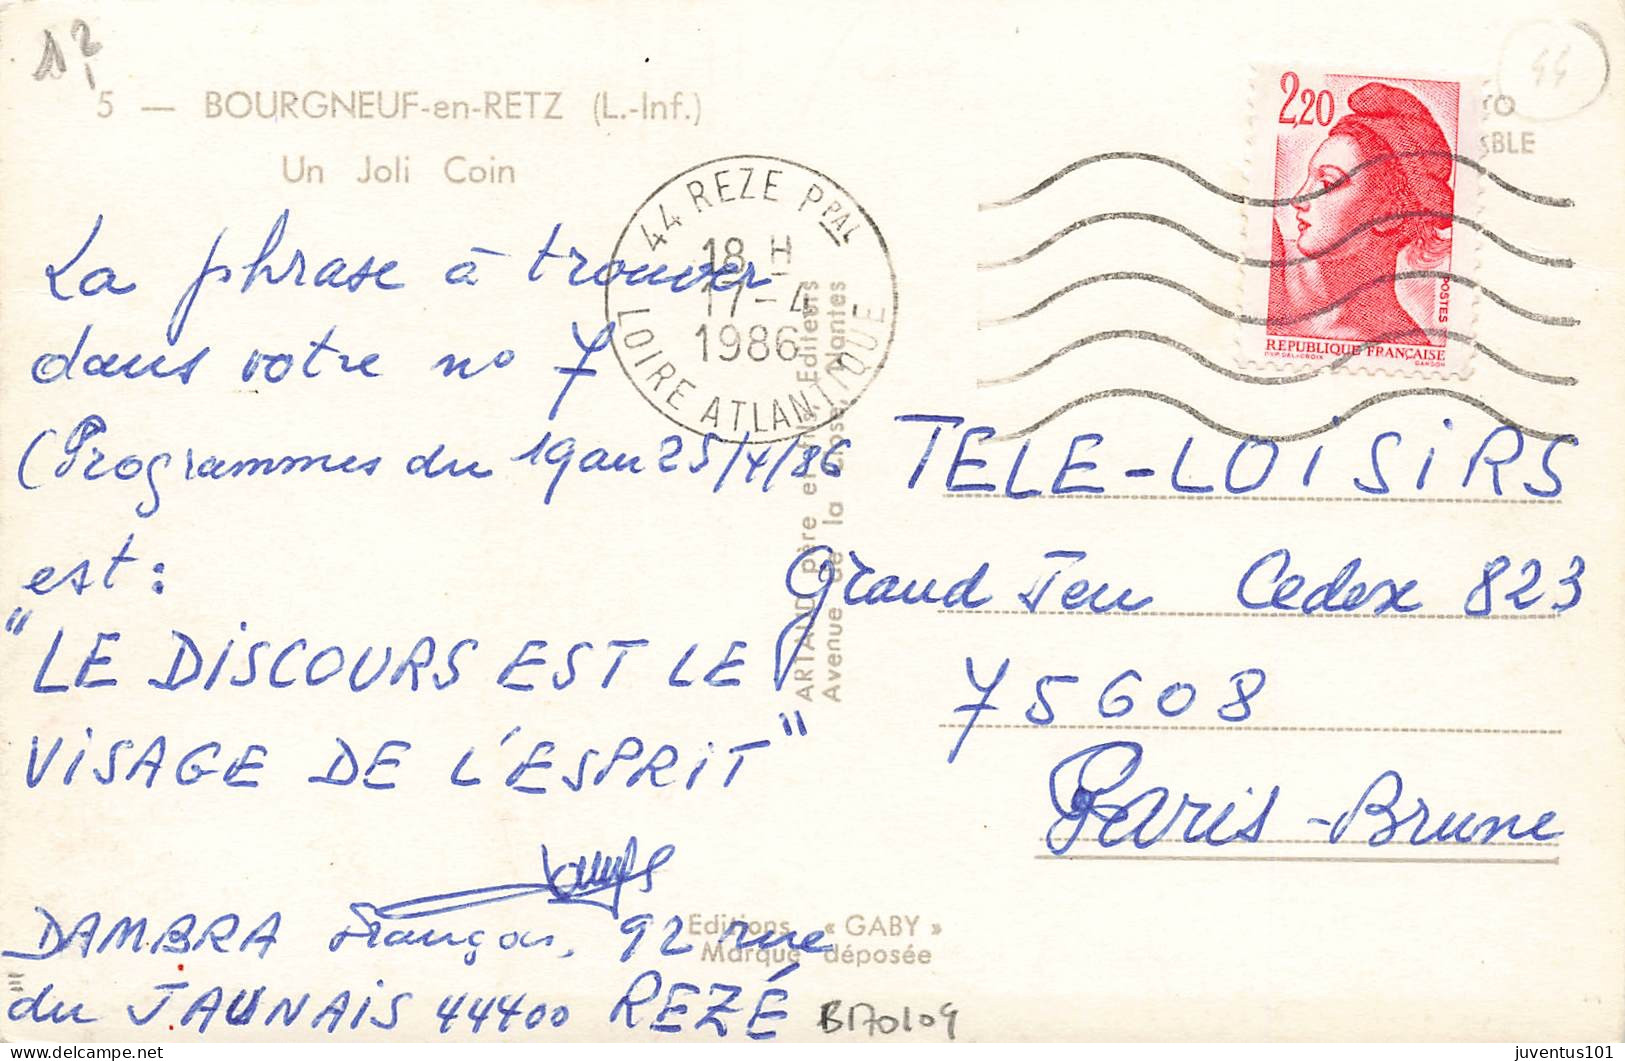 12
5 — BOURGNEUF-en-RETZ (L.-Inf.)
Un Joli Coin
La phrase à trouver
dans votre no 7
(Programmes du 19 au 25/4/86
est :
"LE DISCOURS EST LE
VISAGE DE L'ESPRIT"
DAMBRA François, 92 rue
du JAUNAIS 44400 REZÉ
B170109
44 REZE PPAL
18 H
17-4
1986
LOIRE ATLANTIQUE
ARTAUD père et fils, Editeurs
Avenue de la Close, Nantes
Editions « GABY »
Marque déposée
44
2,20
POSTES
REPUBLIQUE FRANÇAISE
D'AP. DELACROIX
GANDON
TELE-LOISIRS
Grand Jeu Cedex 823
75608
Paris-Brune
juventus101